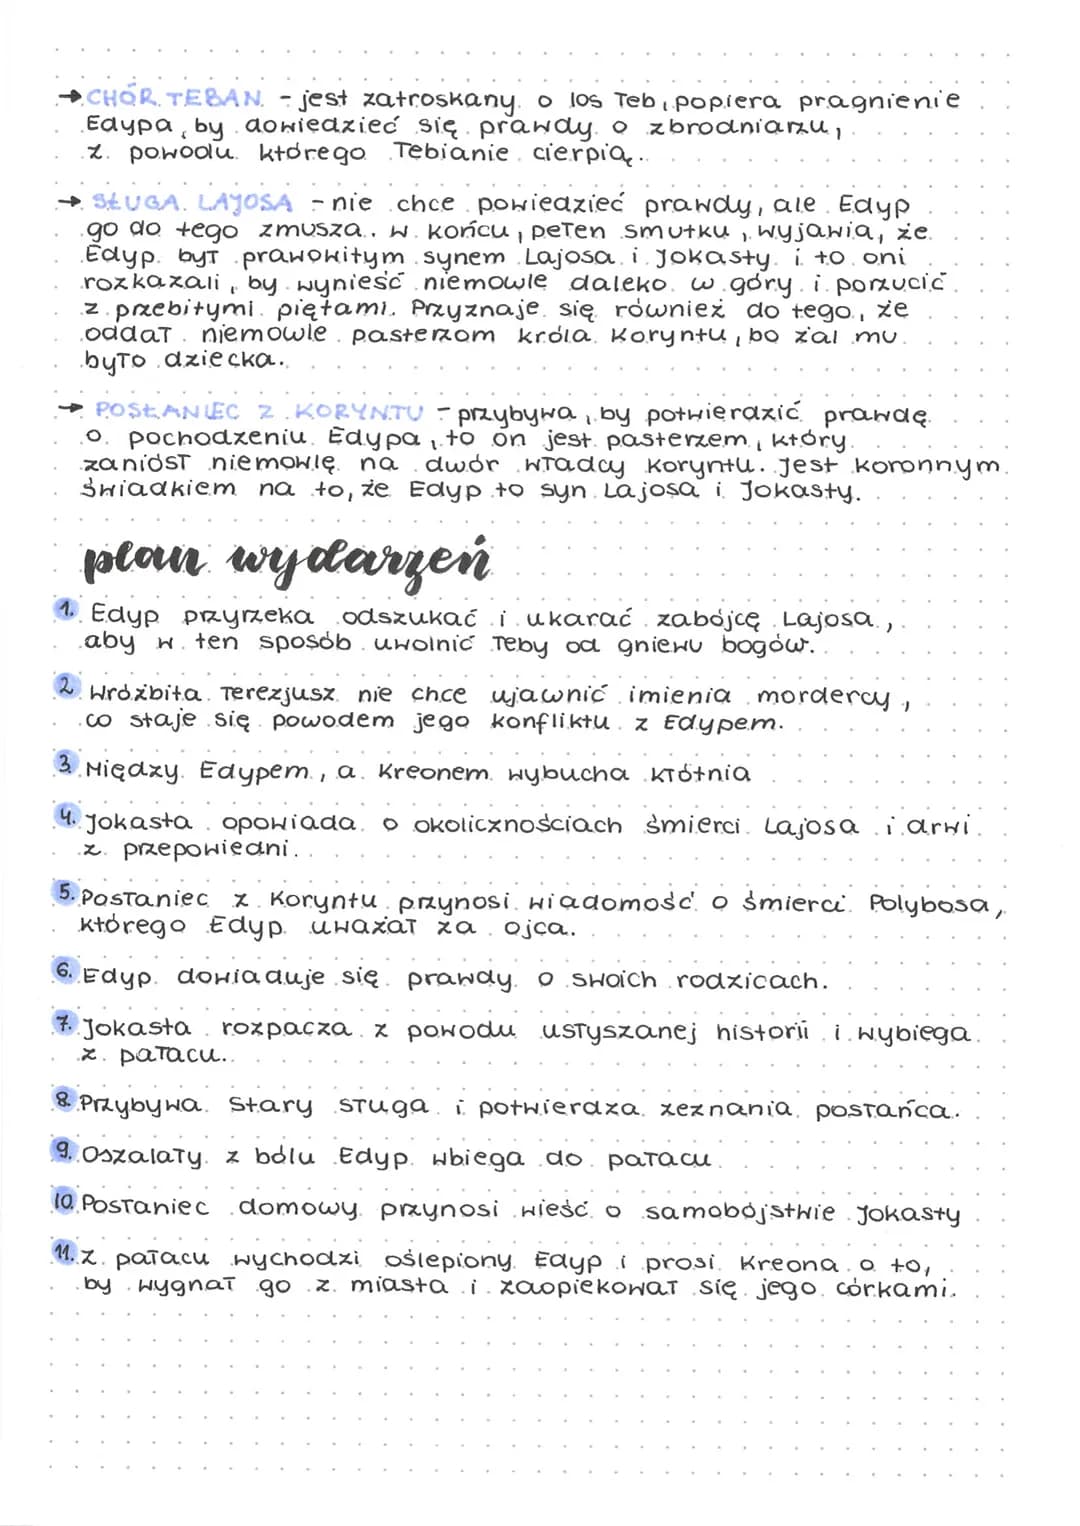 → CHÓR TEBAN - jest zatroskany o los Teb, popiera pragnienie
Edypa, by dowiedzieć się prawdy o zbrodniarzu,
z powodu którego Tebianie cierpią.
→ SŁUGA LAJOSA - nie chce powiedzieć prawdy, ale Edyp
go do tego zmusza. W końcu, pełen smutku, wyjawia, że
Edyp był prawowitym synem Lajosa i Jokasty i to oni
rozkazali, by wynieść niemowle daleko w góry i porzucić
z przebitymi piętami. Przyznaje się również do tego, że
oddał niemowle pasterzom króla Koryntu, bo żal mu
było dziecka.
→ POSŁANIEC Z KORYNTU - przybywa, by potwierdzić prawdę
o pochodzeniu Edypa, to on jest pasterzem, który
zaniósł niemowlę na dwór władcy Koryntu. Jest koronnym
świadkiem na to, że Edyp to syn Lajosa i Jokasty.
plan wydarzeń
1. Edyp przyrzeka odszukać i ukarać zabójcę Lajosa,
aby w ten sposób uwolnić Teby od gniewu bogów.
2. Wróżbita Terezjusz nie chce ujawnić imienia mordercy,
co staje się powodem jego konfliktu z Edypem.
3. Między Edypem, a Kreonem wybucha kłótnia
4. Jokasta opowiada o okolicznościach śmierci Lajosa i drwi
z przepowiedni.
5. Posłaniec z Koryntu przynosi wiadomość o śmierci Polybosa,
którego Edyp uważał za ojca.
6. Edyp dowiaduje się prawdy o swoich rodzicach.
7. Jokasta rozpacza z powodu usłyszanej historii i wybiega
z pałacu.
8. Przybywa stary sługa i potwierdza zeznania posłańca.
9. Oszalały z bólu Edyp wbiega do pałacu
10. Posłaniec domowy przynosi wieść o samobójstwie Jokasty
11. Z pałacu wychodzi oślepiony Edyp i prosi Kreona o to,
by wygnał go z miasta i zaopiekował się jego córkami.